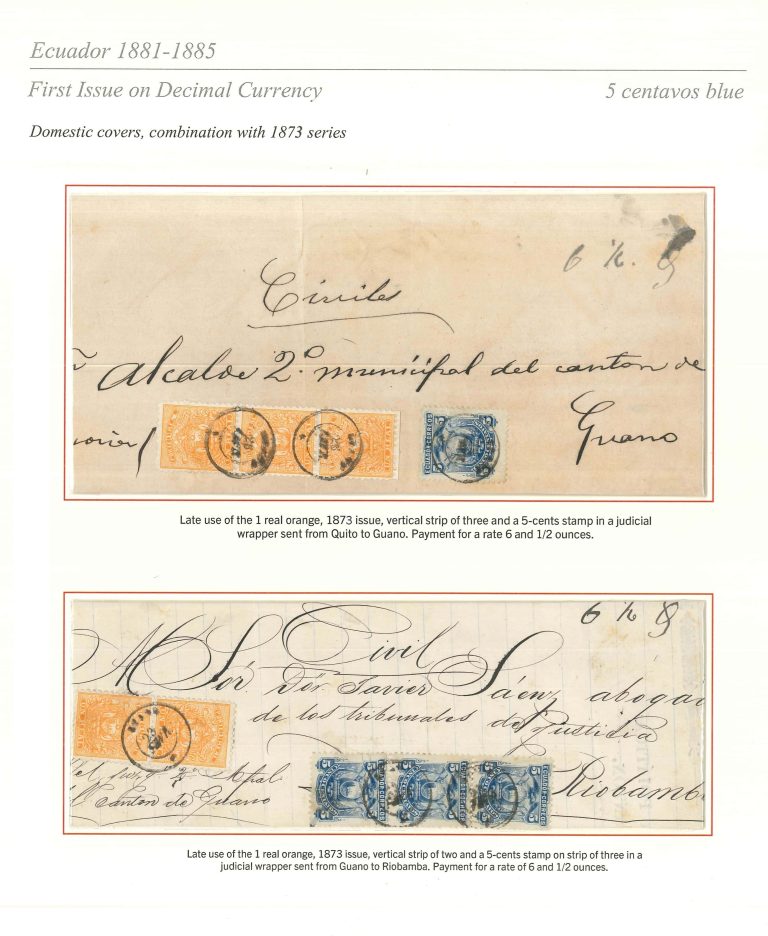 Ecuador 1881-1885
First Issue on Decimal Currency
5 centavos blue
Domestic covers, combination with 1873 series
6 ½.
Civiles
Alcalde 2º municipal del canton de
Guano
ECUADOR CORREOS
5
Late use of the 1 real orange, 1873 issue, vertical strip of three and a 5-cents stamp in a judicial
wrapper sent from Quito to Guano. Payment for a rate 6 and 1/2 ounces.
6 ½
Civil
Sór. Dór Javier Sáenz abogad
de los tribunales de Justicia
Canton de Guano
Riobamb
ECUADOR CORREOS
5 5 5
Late use of the 1 real orange, 1873 issue, vertical strip of two and a 5-cents stamp on strip of three in a
judicial wrapper sent from Guano to Riobamba. Payment for a rate of 6 and 1/2 ounces.